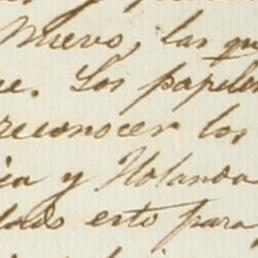 Nuevo, las qu
ce. Los papele
reconocer los
cia y Holanda
dado esto para